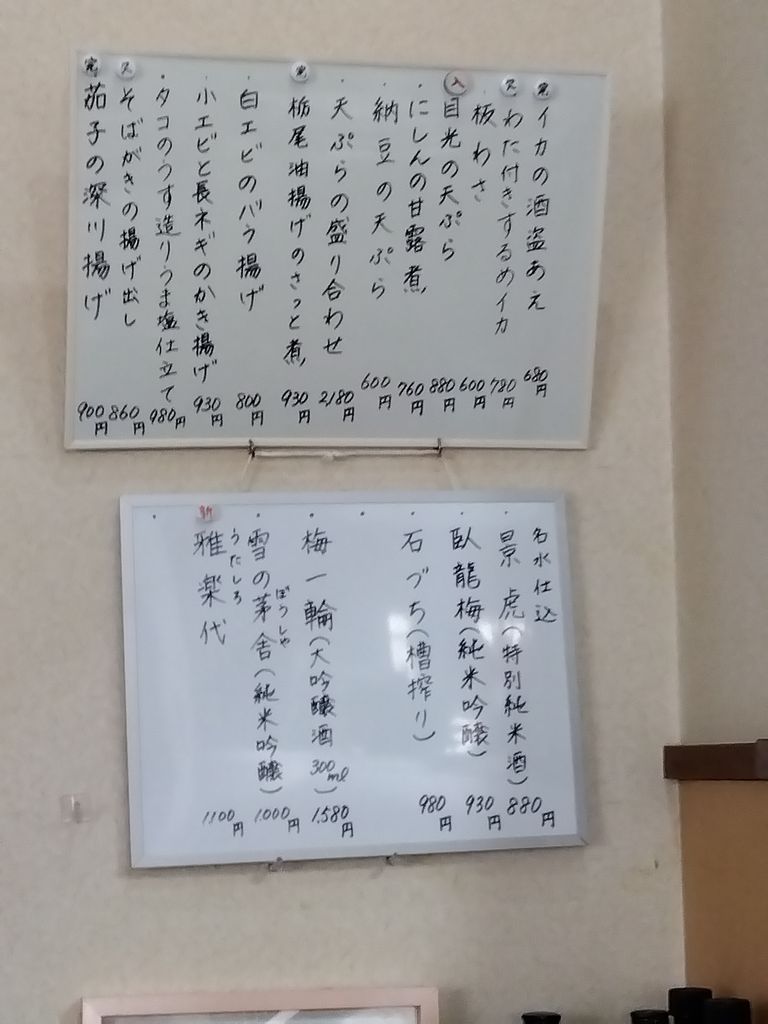 イカの酒盗あえ 680円
わた付きするめイカ 780円
板わさ 600円
入
目光の天ぷら 880円
にしんの甘露煮 760円
納豆の天ぷら 600円
天ぷらの盛り合わせ 2,180円
栃尾油揚げのさっと煮 930円
白エビのバラ揚げ 800円
小エビと長ネギのかき揚げ 930円
タコのうす造りうま塩仕立て 980円
そばがきの揚げ出し 860円
茄子の深川揚げ 900円
名水仕込
景虎(特別純米酒) 880円
臥龍梅(純米吟醸) 930円
石づち(槽搾り) 980円
梅一輪(大吟醸酒300ml) 1,580円
雪の茅舎(純米吟醸) 1,000円
ぼうしゃ
新
雅楽代 1,100円
うたしろ